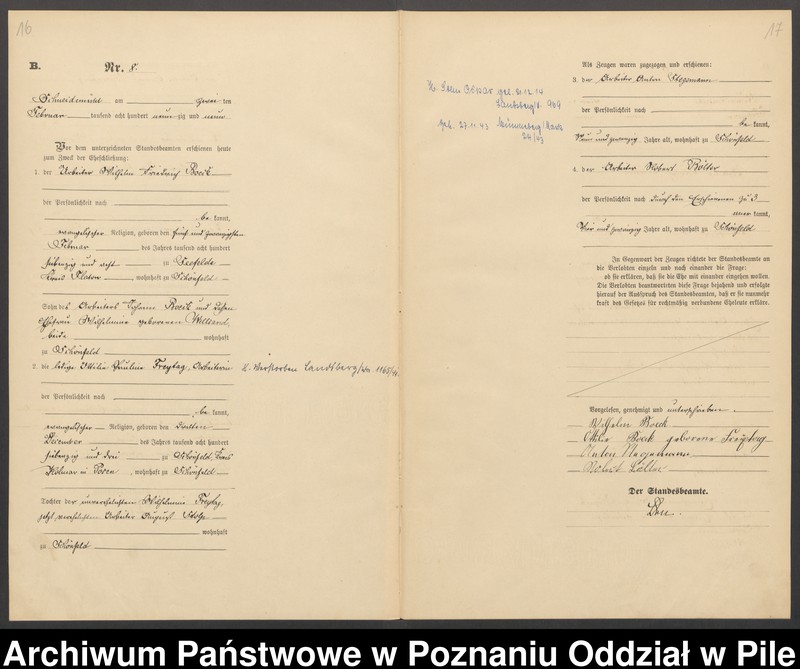 16
B. Nr. 8.
Schneidemühl am zwei ten
Februar tausend acht hundert neun zig und neun
Vor dem unterzeichneten Standesbeamten erschienen heute
zum Zweck der Eheschließung:
1. der Arbeiter Wilhelm Friedrich Boeck
der Persönlichkeit nach
be kannt,
evangelischer Religion, geboren den fünf und zwanzigsten
Februar des Jahres tausend acht hundert
siebenzig und acht zu
Kreis Flatow, wohnhaft zu Schönfeld
Sohn des Arbeiters Johann Boeck und dessen
Ehefrau Wilhelmine geborenen
beide wohnhaft
zu Schönfeld
2. die ledige Ottilie Pauline Freytag, Arbeiterin
der Persönlichkeit nach
be kannt,
evangelischer Religion, geboren den dritten
December des Jahres tausend acht hundert
siebenzig und drei zu Schönfeld, Kreis
Kolmar in Posen, wohnhaft zu Schönfeld
Tochter der unverehelichten Wilhelmine Freytag,
jetzt verehelichten Arbeiter August
wohnhaft
zu Schönfeld
verstorben Landsberg
17
geb. 31.12.14
Landsberg
27.11.43
Als Zeugen waren zugezogen und erschienen:
3. der Arbeiter Anton Stegemann
der Persönlichkeit nach
be kannt,
und zwanzig Jahre alt, wohnhaft zu Schönfeld
4. der Arbeiter Robert
der Persönlichkeit nach durch den Erschienenen zu 3
kannt,
vier und zwanzig Jahre alt, wohnhaft zu Schönfeld
In Gegenwart der Zeugen richtete der Standesbeamte an
die Verlobten einzeln und nach einander die Frage:
ob sie erklären, daß sie die Ehe mit einander eingehen wollen.
Die Verlobten beantworteten diese Frage bejahend und erfolgte
hierauf der Ausspruch des Standesbeamten, daß er sie nunmehr
kraft des Gesetzes für rechtmäßig verbundene Eheleute erkläre.
Vorgelesen, genehmigt und unterschrieben.
Wilhelm Boeck
Ottilie Boeck geborene Freytag
Anton Stegemann
Robert
Der Standesbeamte.
Archiwum Państwowe w Poznaniu Oddział w Pile